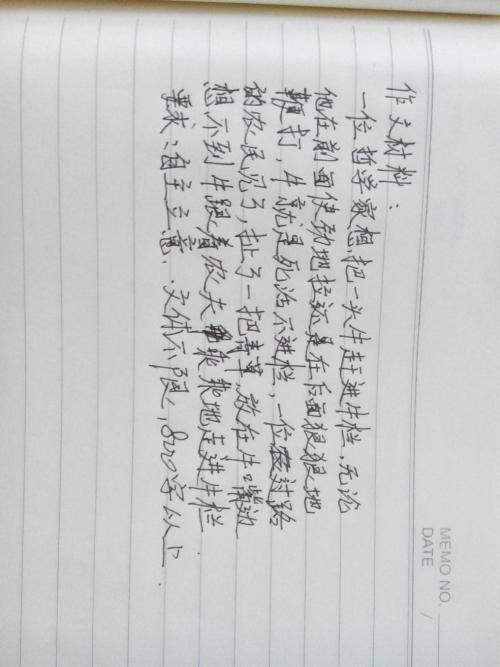 作文材料：
一位哲学家想把一头牛赶进牛栏，无论
他在前面使劲地拉还是在后面狠狠地
鞭打，牛就是死活不进栏，一位过路
的农民见了，扯了一把青草放在牛嘴边
想不到牛跟着农夫乖乖地走进牛栏
要求：自主立意，文体不限，800字以上.
MEMO NO.
DATE /